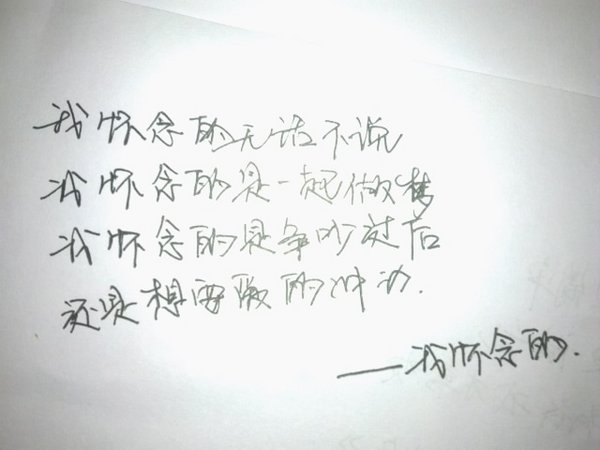 我怀念的无话不说
我怀念的是一起做梦
我怀念的是争吵过后
还是想要爱的冲动.
——我怀念的.